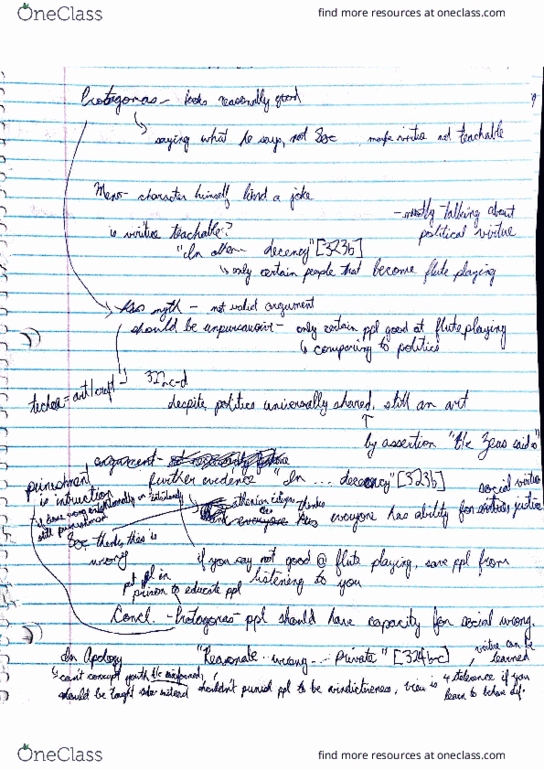 OneClass
find more resources at oneclass.com
Protagoras - looks reasonably good
saying what he says, not Soc make virtue not teachable
Meno - character himself kind a joke
- mostly talking about
political virtue
is virtue teachable?
"In other decency" [323b]
only certain people that become flute playing
myth - not valid argument
should be - only certain ppl good at flute playing
comparing to politics
322c-d
techne = art/craft
despite politics universally shared, still an art
by assertion "b/c Zeus said"
argument -
further evidence "In ... decency" [323b]
punishment
is intruction
social virtue
athenian citizens thinks
everyone has ability for justice
Soc thinks this is
wrong
if you say not good @ flute playing, save ppl from
listening to you
put ppl in
prison to educate ppl
Concl. - Protagoras - ppl should have capacity for social wrong.
In Apology
"Reasonate wrong ... Private" [324b-c]
virtue can be
learned
can't corrupt youth b/c
should be taught instead
shouldn't punish ppl to be vindictiveness, view is tolerance if you
learn to behave dif.
OneClass
find more resources at oneclass.com